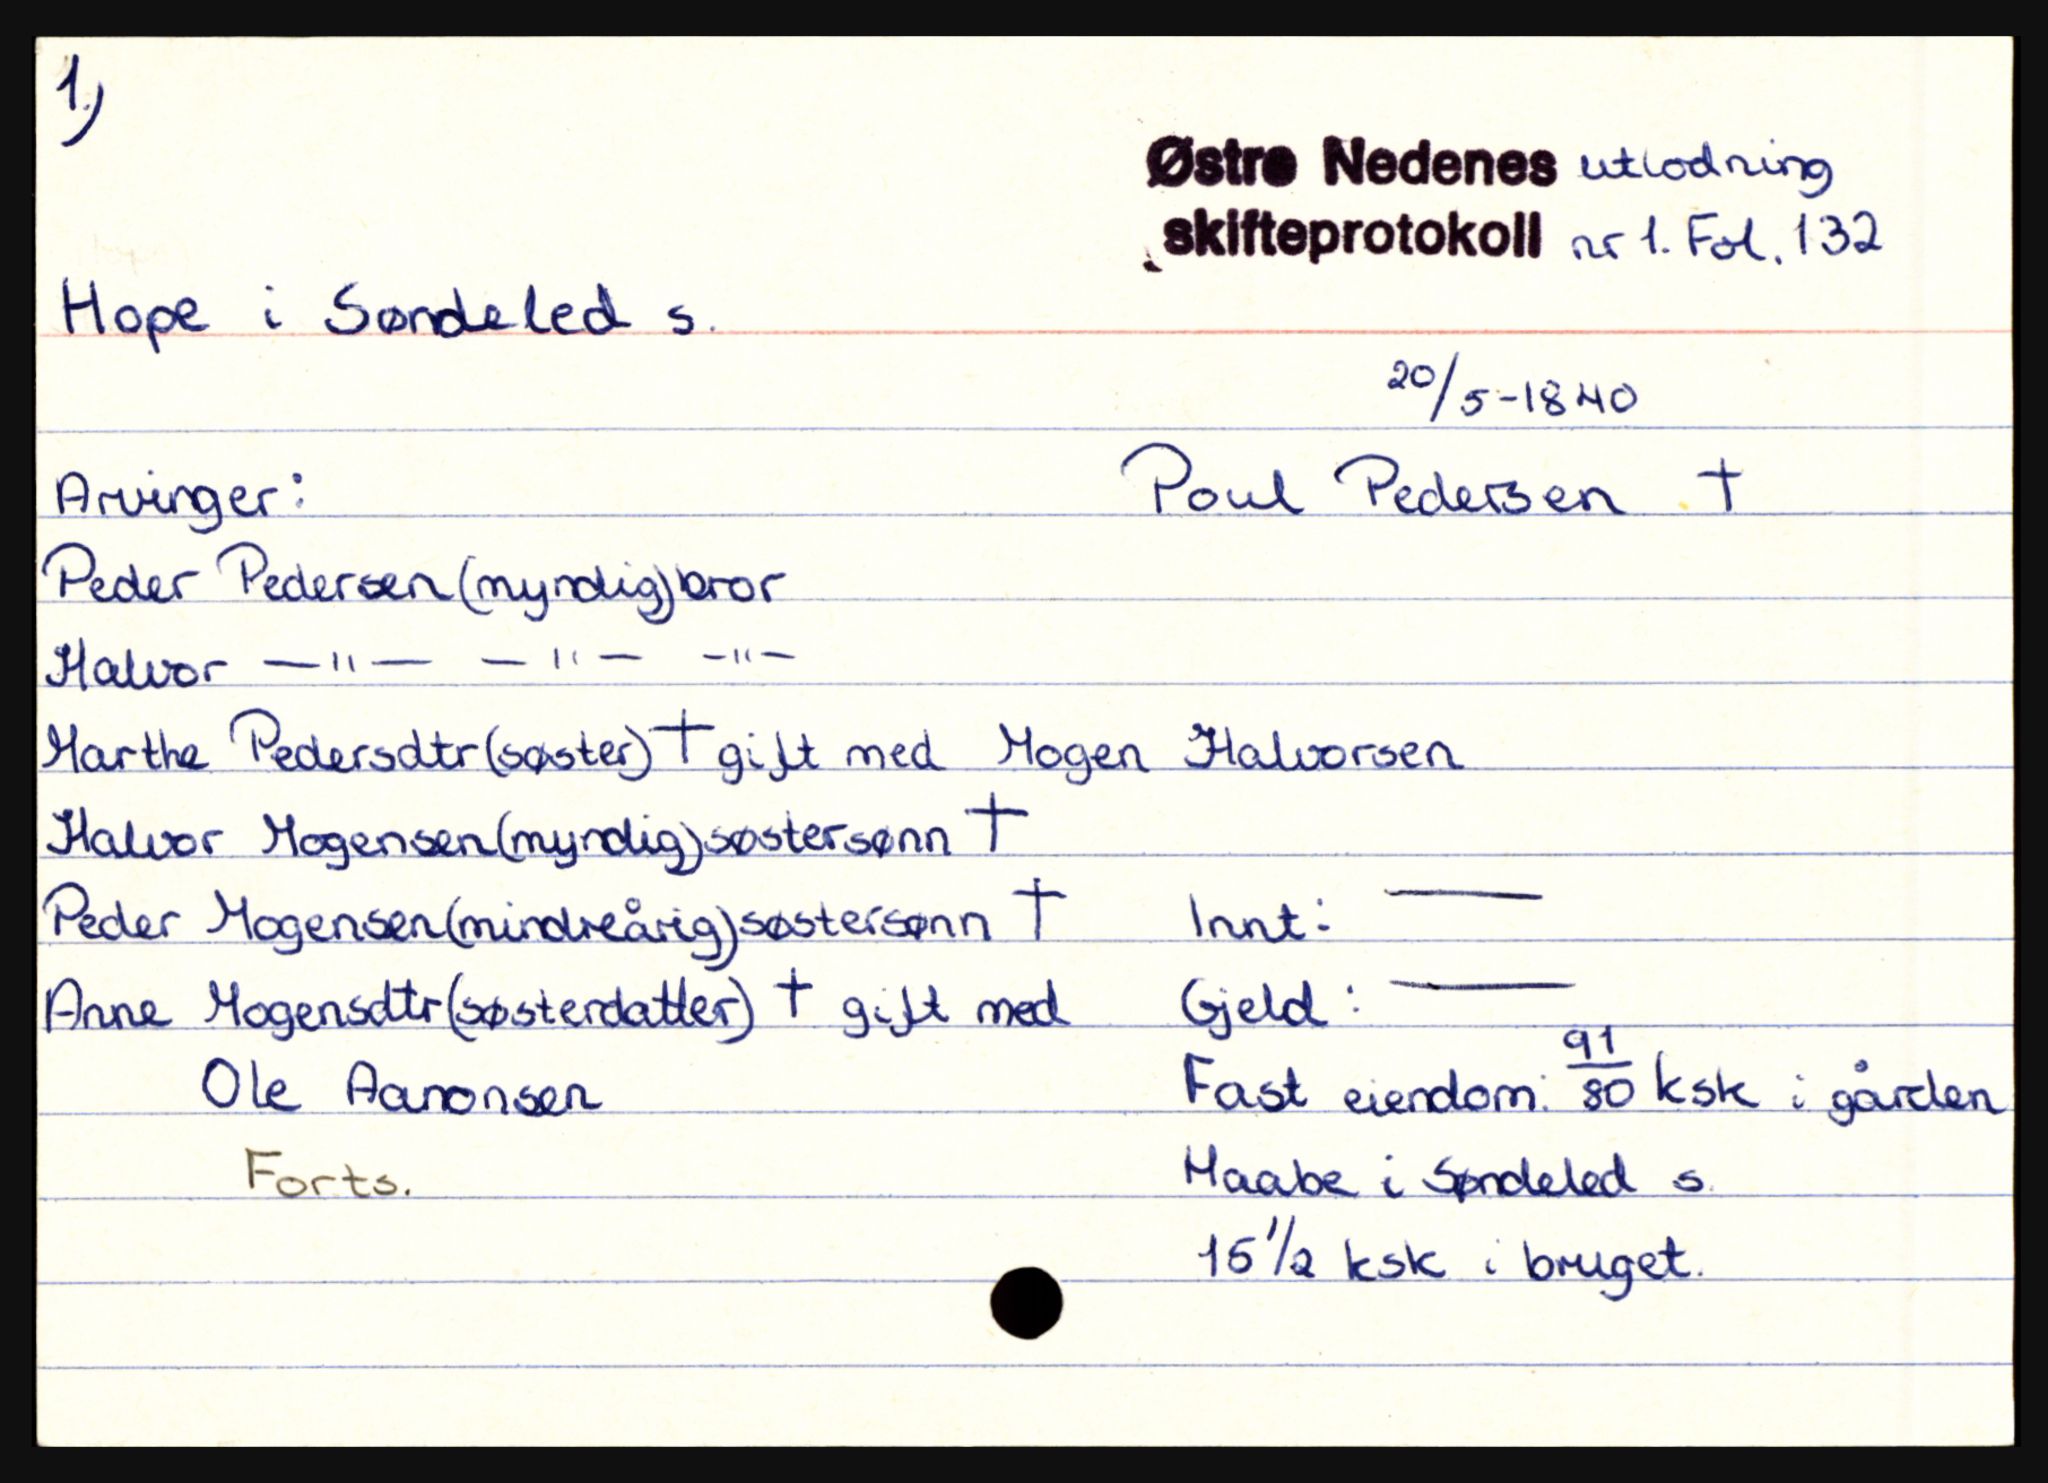 1.)
Østre Nedenes utlodning
skifteprotokoll nr 1. Fol. 132
Hope i Søndeled s.
20/5-1840
Arvinger: Poul Pedersen †
Peder Pedersen (myndig) bror
Halvor —"— —"— —"—
Marthe Pedersdtr (søster) † gift med Mogen Halvorsen
Halvor Mogensen (myndig) søstersønn †
Peder Mogensen (mindreårig) søstersønn † Innt: —
Anne Mogensdtr (søsterdatter) † gift med Gjeld: —
Ole Aanonsen Fast eiendom: 91/80 ksk i gården
Forts. Haabe i Søndeled s.
15 1/2 ksk i bruget.